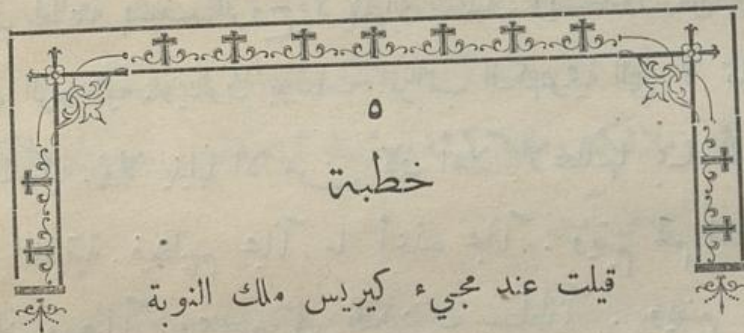 ٥
خطبة
قيلت عند مجيء كيريس ملك النوبة